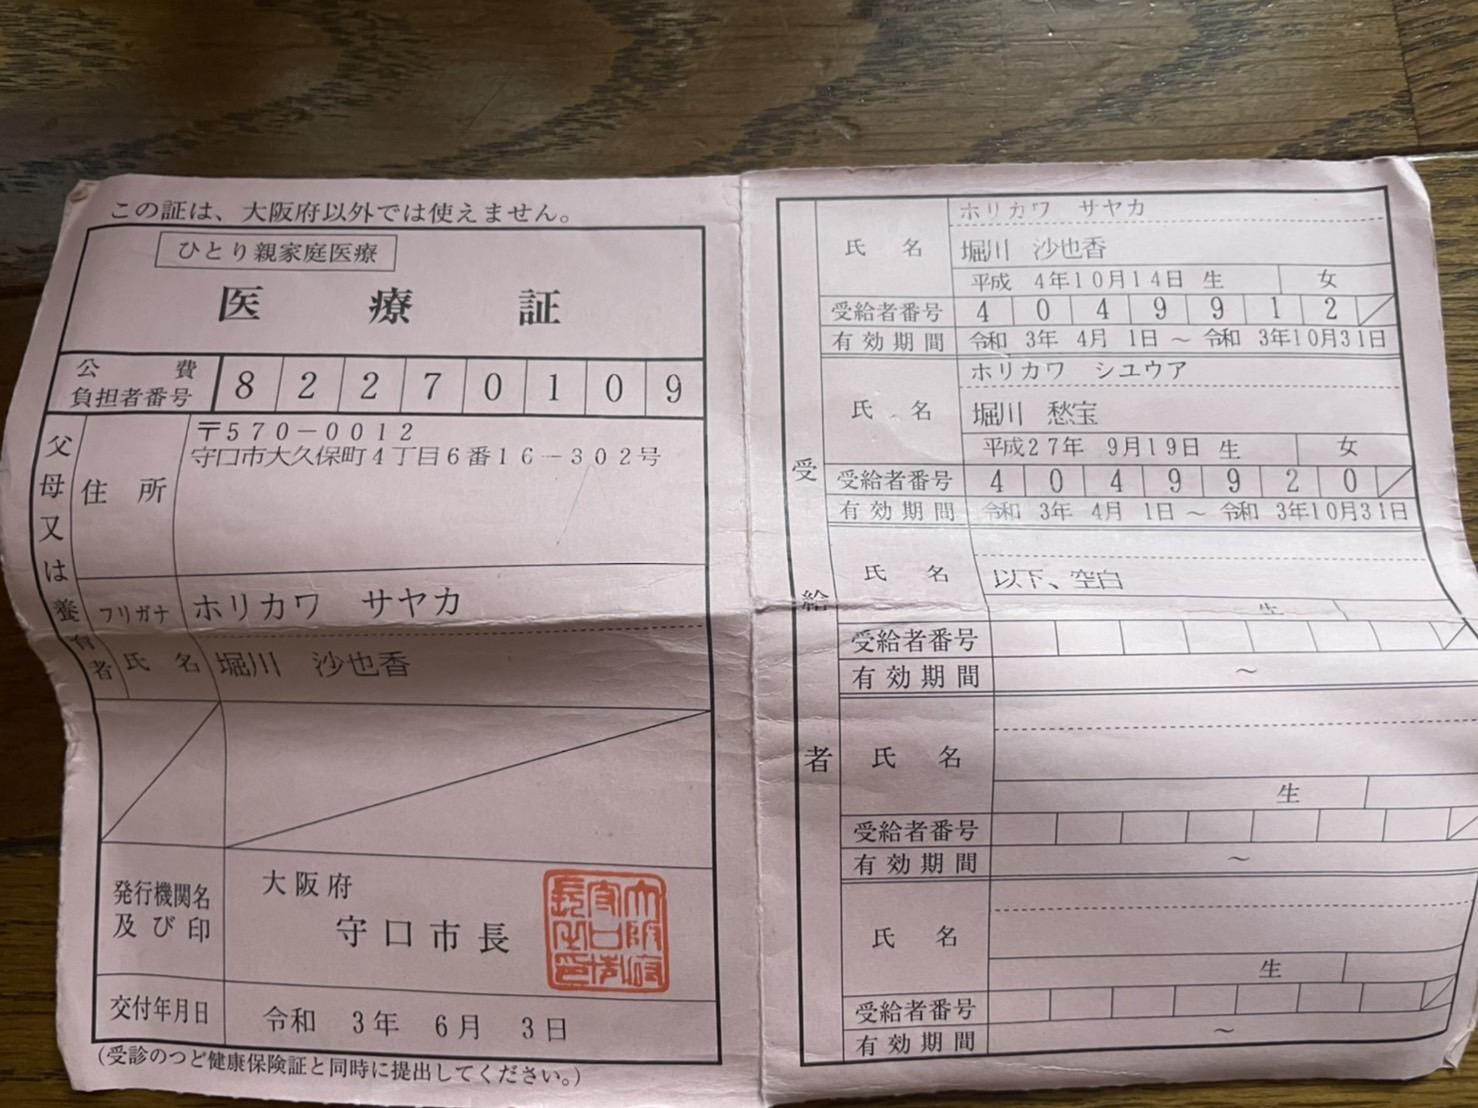 この証は、大阪府以外では使えません。
ひとり親家庭医療
医療証
公費
負担者番号 82270109
父母又は養育者
住所
〒570-0012
守口市大久保町4丁目6番16-302号
フリガナ ホリカワ サヤカ
氏名 堀川 沙也香
発行機関名
及び印
大阪府
守口市長
大阪府守口市長之印
交付年月日 令和 3年 6月 3日
(受診のつど健康保険証と同時に提出してください。)
受給者
ホリカワ サヤカ
氏名 堀川 沙也香
平成 4年10月14日 生 女
受給者番号 4049912
有効期間 令和 3年 4月 1日 ~ 令和 3年10月31日
ホリカワ シユウア
氏名 堀川 愁宝
平成27年 9月19日 生 女
受給者番号 4049920
有効期間 令和 3年 4月 1日 ~ 令和 3年10月31日
氏名 以下、空白
生
受給者番号
有効期間 ~
氏名
生
受給者番号
有効期間 ~
氏名
生
受給者番号
有効期間 ~